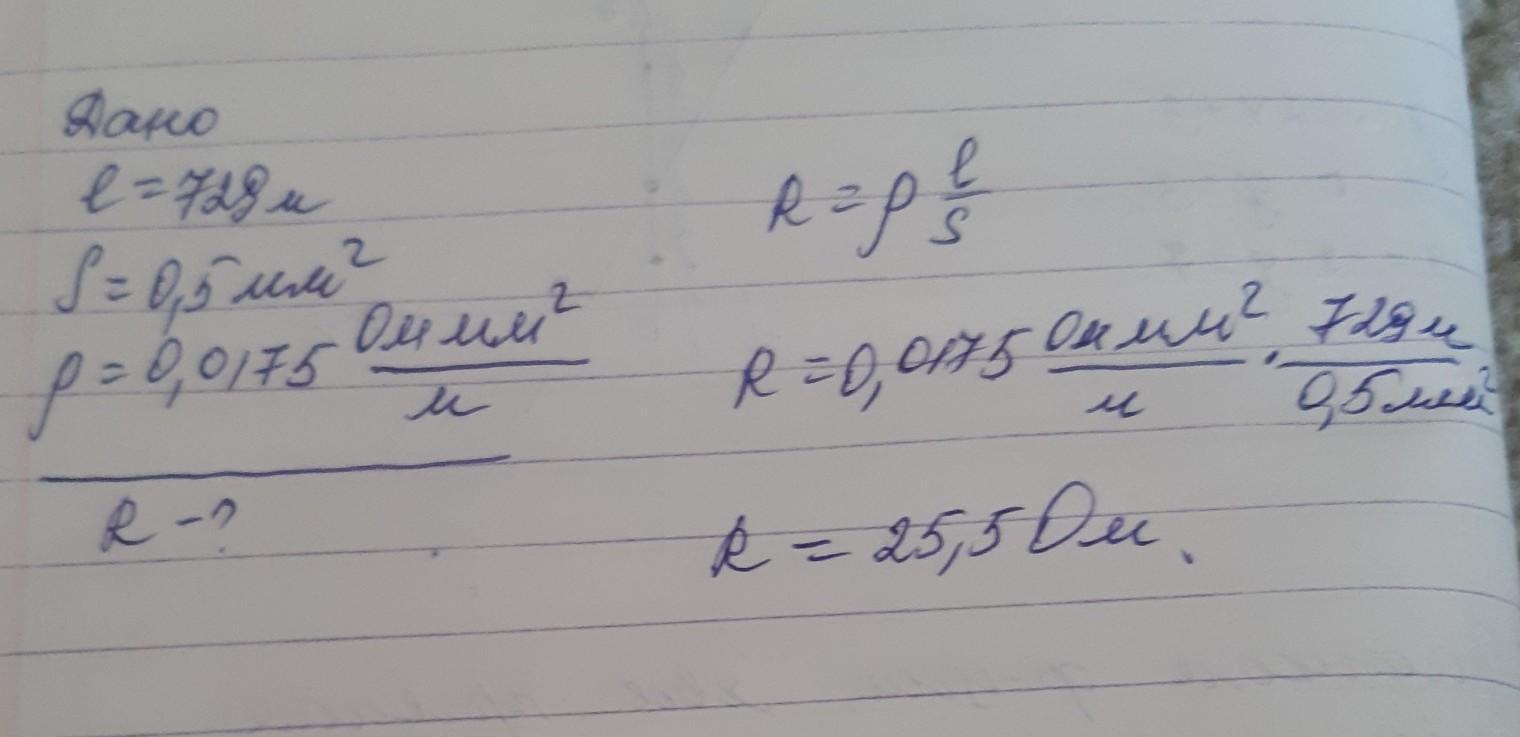 Дано
l = 729 м
S = 0,5 мм²
ρ = 0,0175 Ом мм² / м
R - ?
R = ρ l / S
R = 0,0175 Ом мм² / м · 729 м / 0,5 мм²
R = 25,5 Ом.